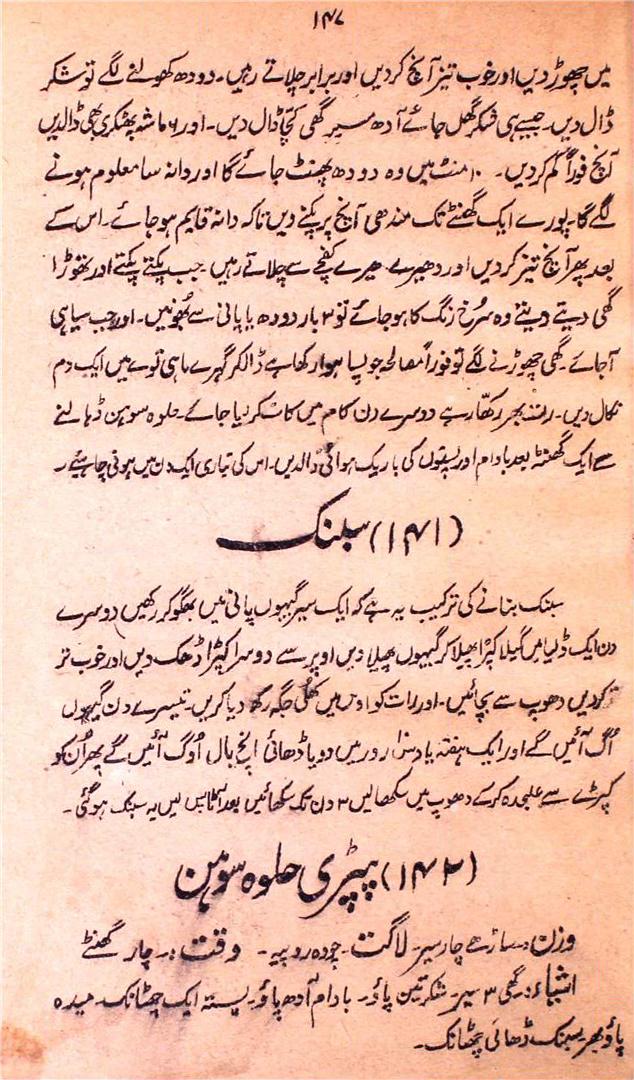 ۱۴۷
میں چھوڑ دیں اور خوب تیز آنچ کر دیں اور برابر چلاتے رہیں۔ دودھ کھولنے لگے تو شکر
ڈال دیں۔ جیسے ہی شکر گھل جائے آدھ سیر گھی کچا ڈال دیں۔ اور ۶ ماشہ پھٹکری بھی ڈالدیں
آنچ فوراً کم کر دیں۔ ۱۰ منٹ میں وہ دودھ پھنٹ جائے گا اور دانہ سا معلوم ہونے
لگے گا۔ پورے ایک گھنٹے تک مندھی آنچ پر پکنے دیں تاکہ دانہ قایم ہو جائے۔ اس کے
بعد پھر آنچ تیز کر دیں اور دھیرے دھیرے کفچے سے چلاتے رہیں۔ جب پکتے پکتے اور تھوڑا
گھی دیتے دیتے وہ سرخ رنگ کا ہو جائے تو ۳ بار دودھ یا پانی سے بھُونیں۔ اور جب سیاہی
آجائے۔ گھی چھوڑنے لگے تو فوراً مصالحہ جو پسا ہوا رکھا ہے ڈالکر گہرے ماہی توے میں ایک دم
نکال دیں۔ رات بھر رکھا رہے دوسرے دن کام میں کاٹ کر لیا جائے۔ حلوہ سوہن ڈھالنے
سے ایک گھنٹہ بعد بادام اور پستوں کی باریک ہوائی ڈالدیں۔ اس کی تیاری ایک دن میں ہونی چاہیئے۔
(۱۴۱) سبنک
سبنک بنانے کی ترکیب یہ ہے کہ ایک سیر گیہوں پانی میں بھگو کر رکھیں دوسرے
دن ایک ڈلیا میں گیلا کپڑا بچھا کر گیہوں پھیلا دیں اوپر سے دوسرا کپڑا ڈھک دیں اور خوب تر
کر دیں دھوپ سے بچائیں۔ اور رات کو اوس میں کھُلی جگہ رکھ دیا کریں۔ تیسرے دن گیہوں
اُگ آئیں گے اور ایک ہفتہ یا دس روز میں دو یا ڈھائی انچ بال اُوگ آئیں گے پھر اُن کو
کپڑے سے علیحدہ کر کے دھوپ میں سکھالیں ۳ دن تک سکھائیں بعد اسکے پیس لیں یہ سبنک ہو گئی۔
(۱۴۲) پپڑی حلوہ سوہن
وزن:۔ ساڑھے چار سیر۔ لاگت۔ چودہ روپیہ۔ وقت:۔ چار گھنٹے
اشیاء:۔ گھی ۳ سیر۔ شکر تین پاؤ۔ بادام آدھ پاؤ۔ پستہ ایک چھٹانک۔ میدہ
پاؤ بھر۔ سبنک ڈھائی چھٹانک۔